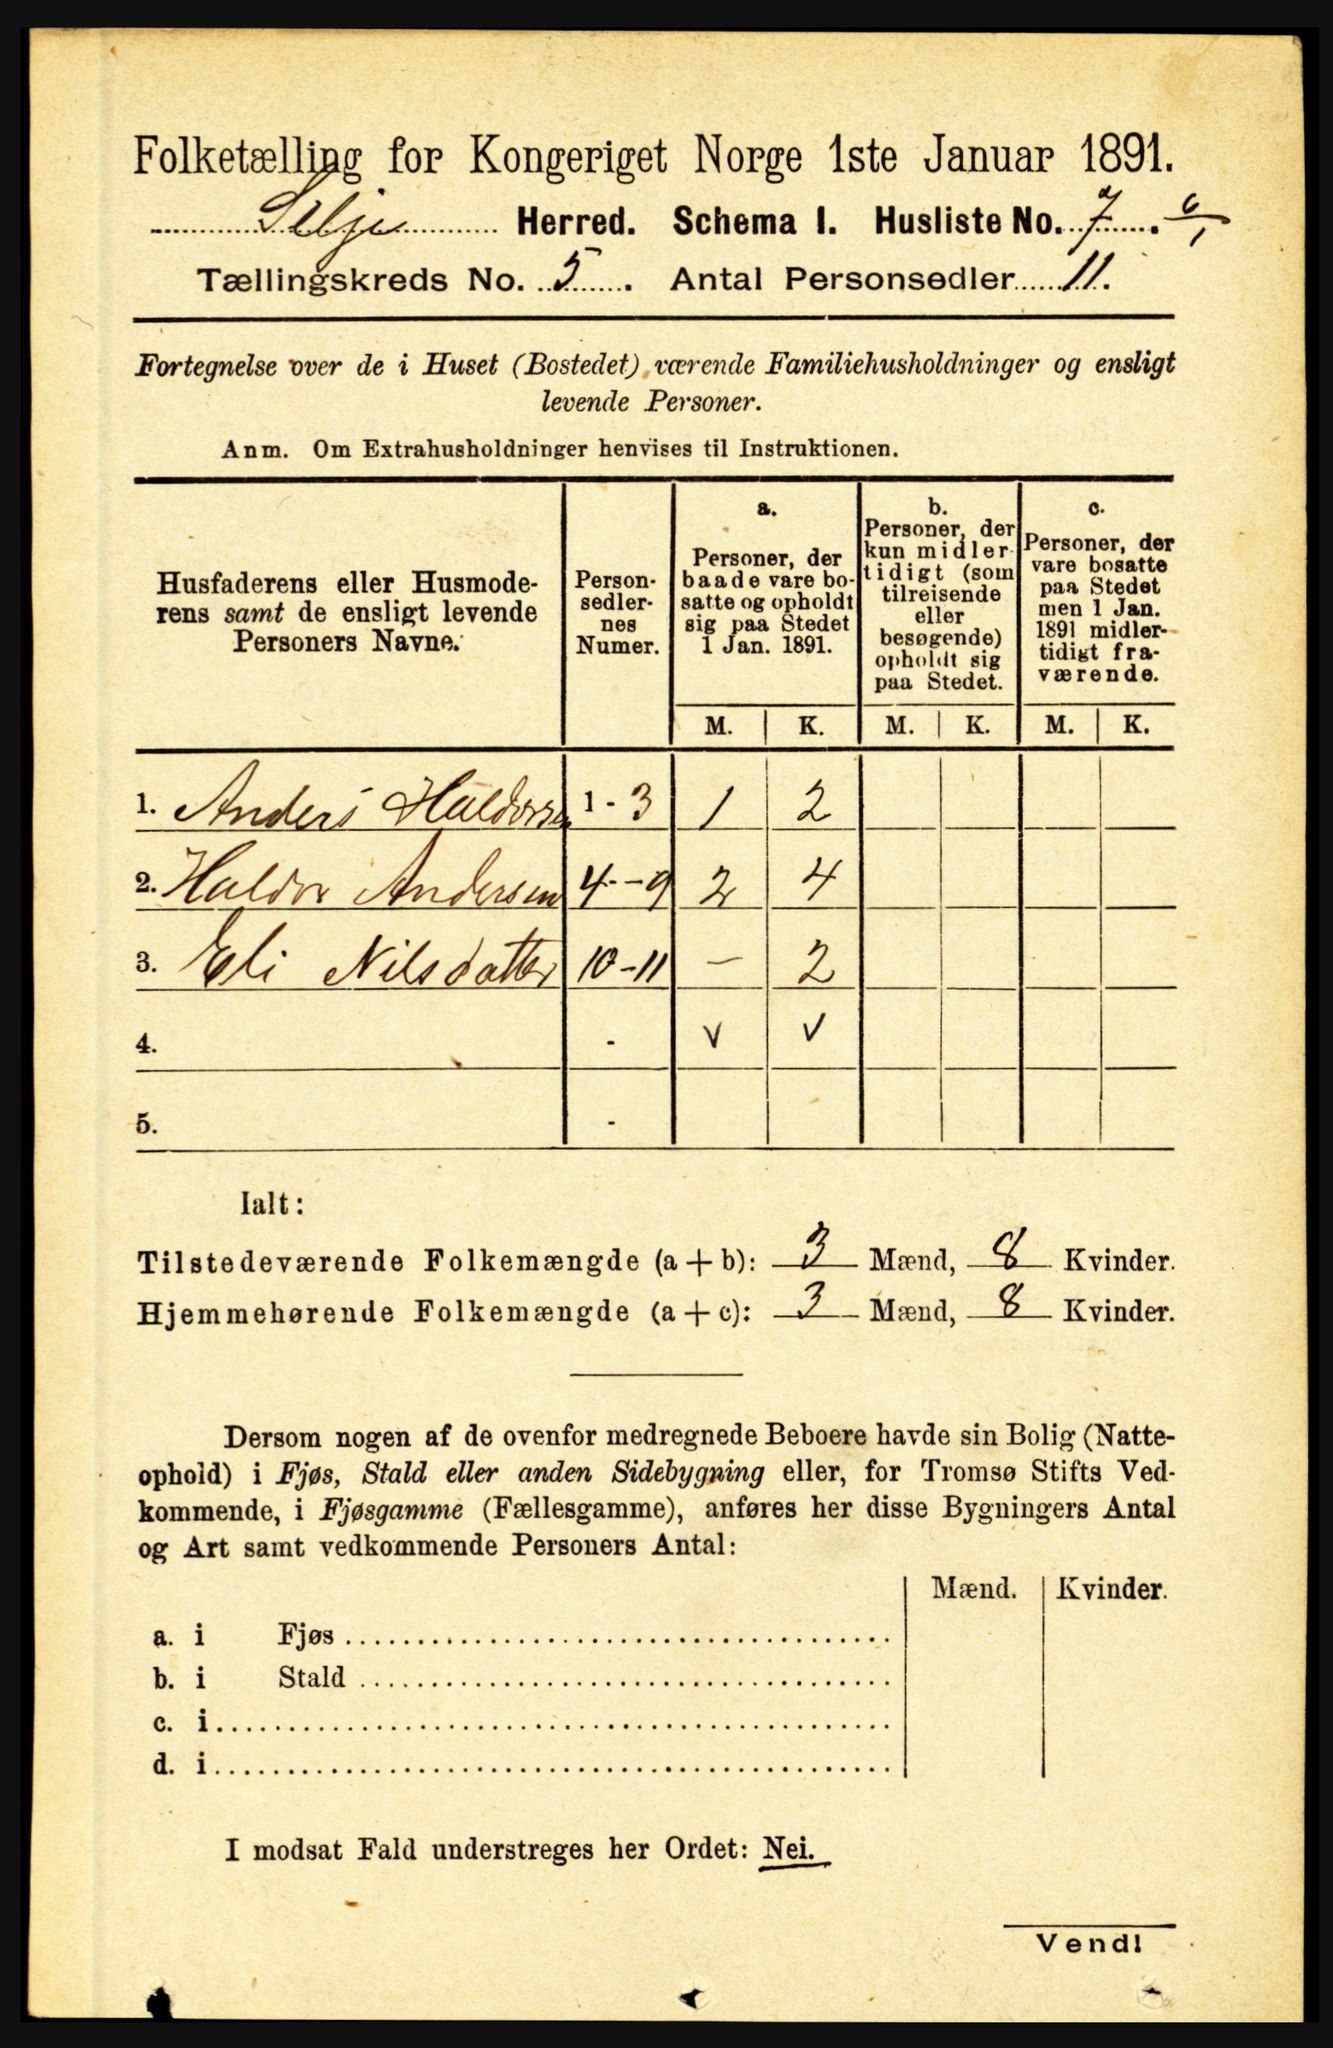 Folketælling for Kongeriget Norge 1ste Januar 1891.
Selje Herred. Schema I. Husliste No. 7. 6/1
Tællingskreds No. 5. Antal Personsedler 11.
Fortegnelse over de i Huset (Bostedet) værende Familiehusholdninger og ensligt
levende Personer.
Anm. Om Extrahusholdninger henvises til Instruktionen.
Husfaderens eller Husmode-
rens samt de ensligt levende
Personers Navne.
Person-
sedler-
nes
Numer.
a.
Personer, der
baade vare bo-
satte og opholdt
sig paa Stedet
1 Jan. 1891.
b.
Personer, der
kun midler-
tidigt (som
tilreisende
eller
besøgende)
opholdt sig
paa Stedet.
c.
Personer, der
vare bosatte
paa Stedet
men 1 Jan.
1891 midler-
tidigt fra-
værende.
M. K. M. K. M. K.
1. Anders Haldorsen 1 - 3 1 2
2. Haldor Andersen 4 - 9 2 4
3. Eli Nilsdatter 10 - 11 – 2
4. - v v
5. -
Ialt:
Tilstedeværende Folkemængde (a + b): 3 Mænd, 8 Kvinder.
Hjemmehørende Folkemængde (a + c): 3 Mænd, 8 Kvinder.
Dersom nogen af de ovenfor medregnede Beboere havde sin Bolig (Natte-
ophold) i Fjøs, Stald eller anden Sidebygning eller, for Tromsø Stifts Ved-
kommende, i Fjøsgamme (Fællesgamme), anføres her disse Bygningers Antal
og Art samt vedkommende Personers Antal:
Mænd. Kvinder.
a. i Fjøs
b. i Stald
c. i
d. i
I modsat Fald understreges her Ordet: Nei.
Vend!